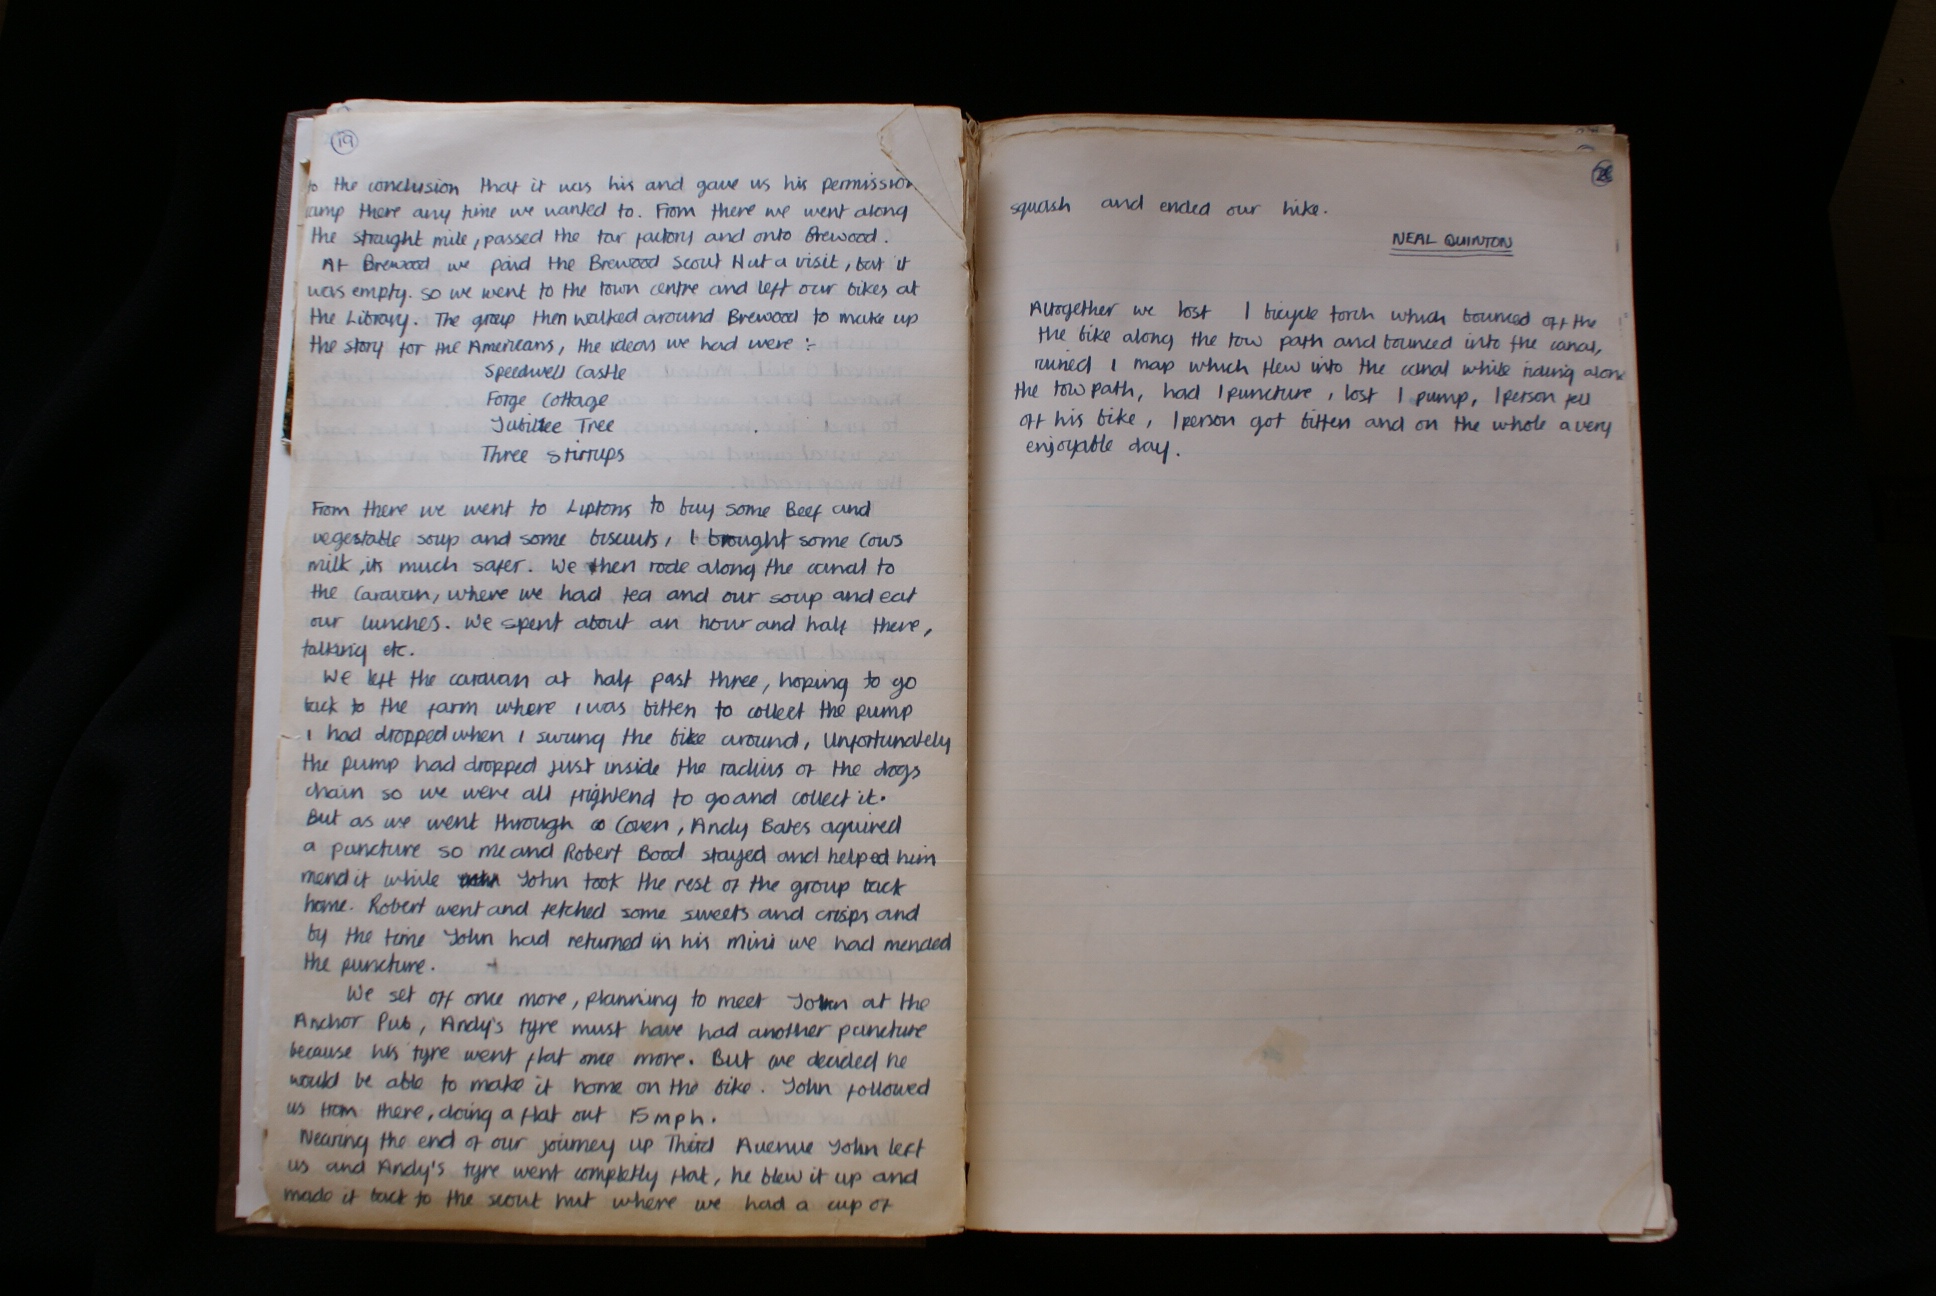 19
to the conclusion that it was his and gave us his permission
camp there any time we wanted to. From there we went along
the straight mile, passed the tar factory and onto Brewood.
At Brewood we paid the Brewood Scout Hut a visit, but it
was empty. So we went to the town centre and left our bikes at
the Library. The group then walked around Brewood to make up
the story for the Americans, the ideas we had were :-
Speedwell Castle
Forge Cottage
Jubillee Tree
Three Stirrups
From there we went to Liptons to buy some Beef and
vegestable soup and some biscuits, I brought some Cows
milk, its much safer. We then rode along the canal to
the Caravan, where we had tea and our soup and eat
our lunches. We spent about an hour and half there,
talking etc.
We left the caravan at half past three, hoping to go
back to the farm where i was bitten to collect the pump
I had dropped when I swung the bike around, Unfortunately
the pump had dropped just inside the radius of the dogs
chain so we were all frightend to go and collect it.
But as we went through Coven, Andy Bates aquired
a puncture so me and Robert Bood stayed and helped him
mend it while John took the rest of the group back
home. Robert went and fetched some sweets and crisps and
by the time John had returned in his Mini we had mended
the puncture.
We set off once more, planning to meet John at the
Anchor Pub, Andy's tyre must have had another puncture
because his tyre went flat once more. But we decided he
would be able to make it home on the bike. John followed
us from there, doing a flat out 15 mph.
Nearing the end of our journey up Third Avenue John left
us and Andy's tyre went completly flat, he blew it up and
made it back to the scout hut where we had a cup of
squash and ended our hike.
NEAL QUINTON
Altogether we lost 1 bicycle torch which bounced off the
the bike along the tow path and bounced into the canal,
ruined 1 map which flew into the canal while riding along
the tow path, had 1 puncture, lost 1 pump, 1 person fell
off his bike, 1 person got bitten and on the whole a very
enjoyable day.